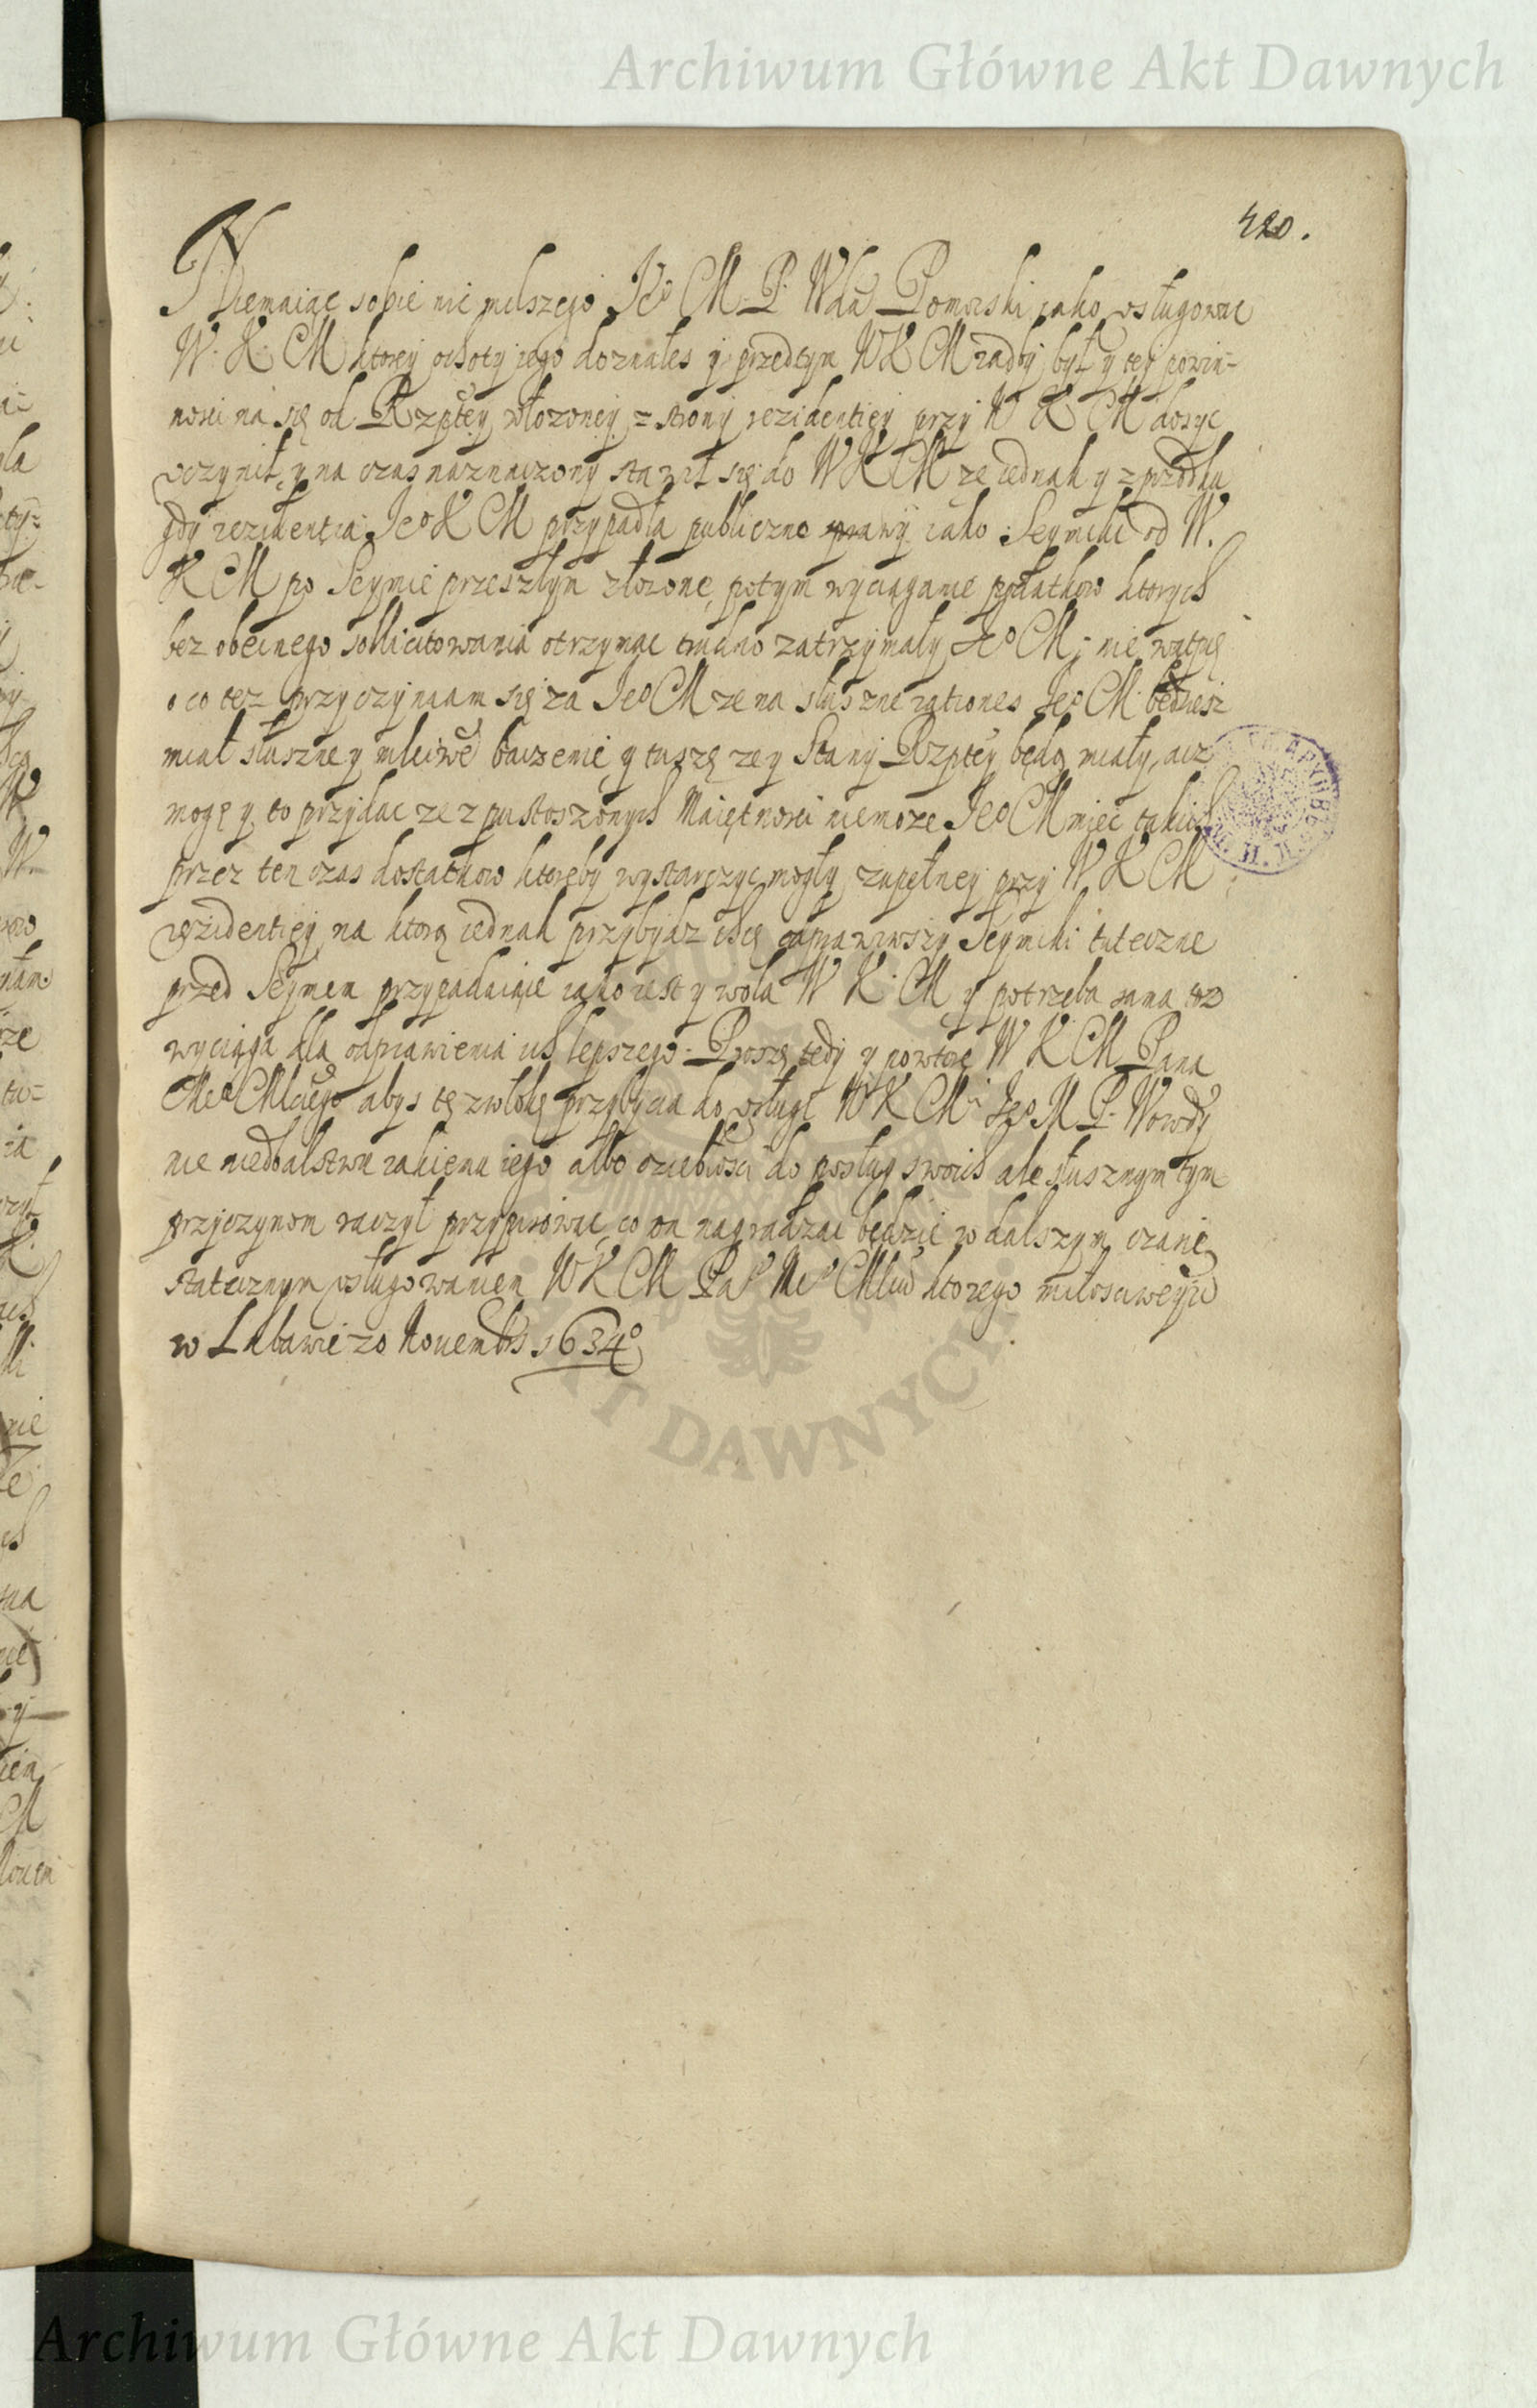 Archiwum Główne Akt Dawnych
420.
Niemaiąc sobie nic milszego Je° C M P. Wda Pomorski iako usługowac
W. K. C M ktorey ochoty iego doznałes y przedtym W K C M radby był y tey powin-
nosci na się od Rzptey włozoney z strony rezidentiey przy W K C M dosyc
uczynił, y na czas naznaczony stawił się do W K C M ze iednak y z przodku
gdy rezidentia Je° K C M przypadła publiczne sprawy iako Seymiki od W.
K C M po Seymie przeszłym złozone, potym wyciąganie podatkow ktorych
bez obecnego sollicitowania otrzymac trudno zatrzymały Je° C M; nie wątpię
o co tez przyczyniam się za Je° C M ze na słuszne rationes Je° C M będziesz
miał słuszne y mlciwe baczenie y tuszę ze y Stany Rzptey będą miały, acz
mogę y to przydac ze z pustoszonych Maiętnosci niemoze Je° C M miec takich
przez ten czas dostatkow ktoreby wystarczyc mogły zupełney przy W K C M
rezidentiey na ktorą iednak przybydz chcę odprawiwszy Seymiki tuteczne
przed Seymem przypadaiące iako iest y wola W K C M y potrzeba sama
wyciąga dla odprawienia ich lepszego. Proszę tedy y powtore W K C M Pana
Me° Mlciwego abys tę zwłokę przybycia do usług W K C Mci Je° M P. Wowdy
nie niedbalstwu iakiemu iego albo oziebłosci do posług swoich ale słusznym tym
przyczynom raczył przypisowac, co on nagradzac będzie w dalszym czasie
statecznym usługowaniem W K C M Pa° Me° Mlciw ktorego miłosciwey
w Lubawie 20 Nouembris 1634°
AKT DAWNYCH
Archiwum Główne Akt Dawnych